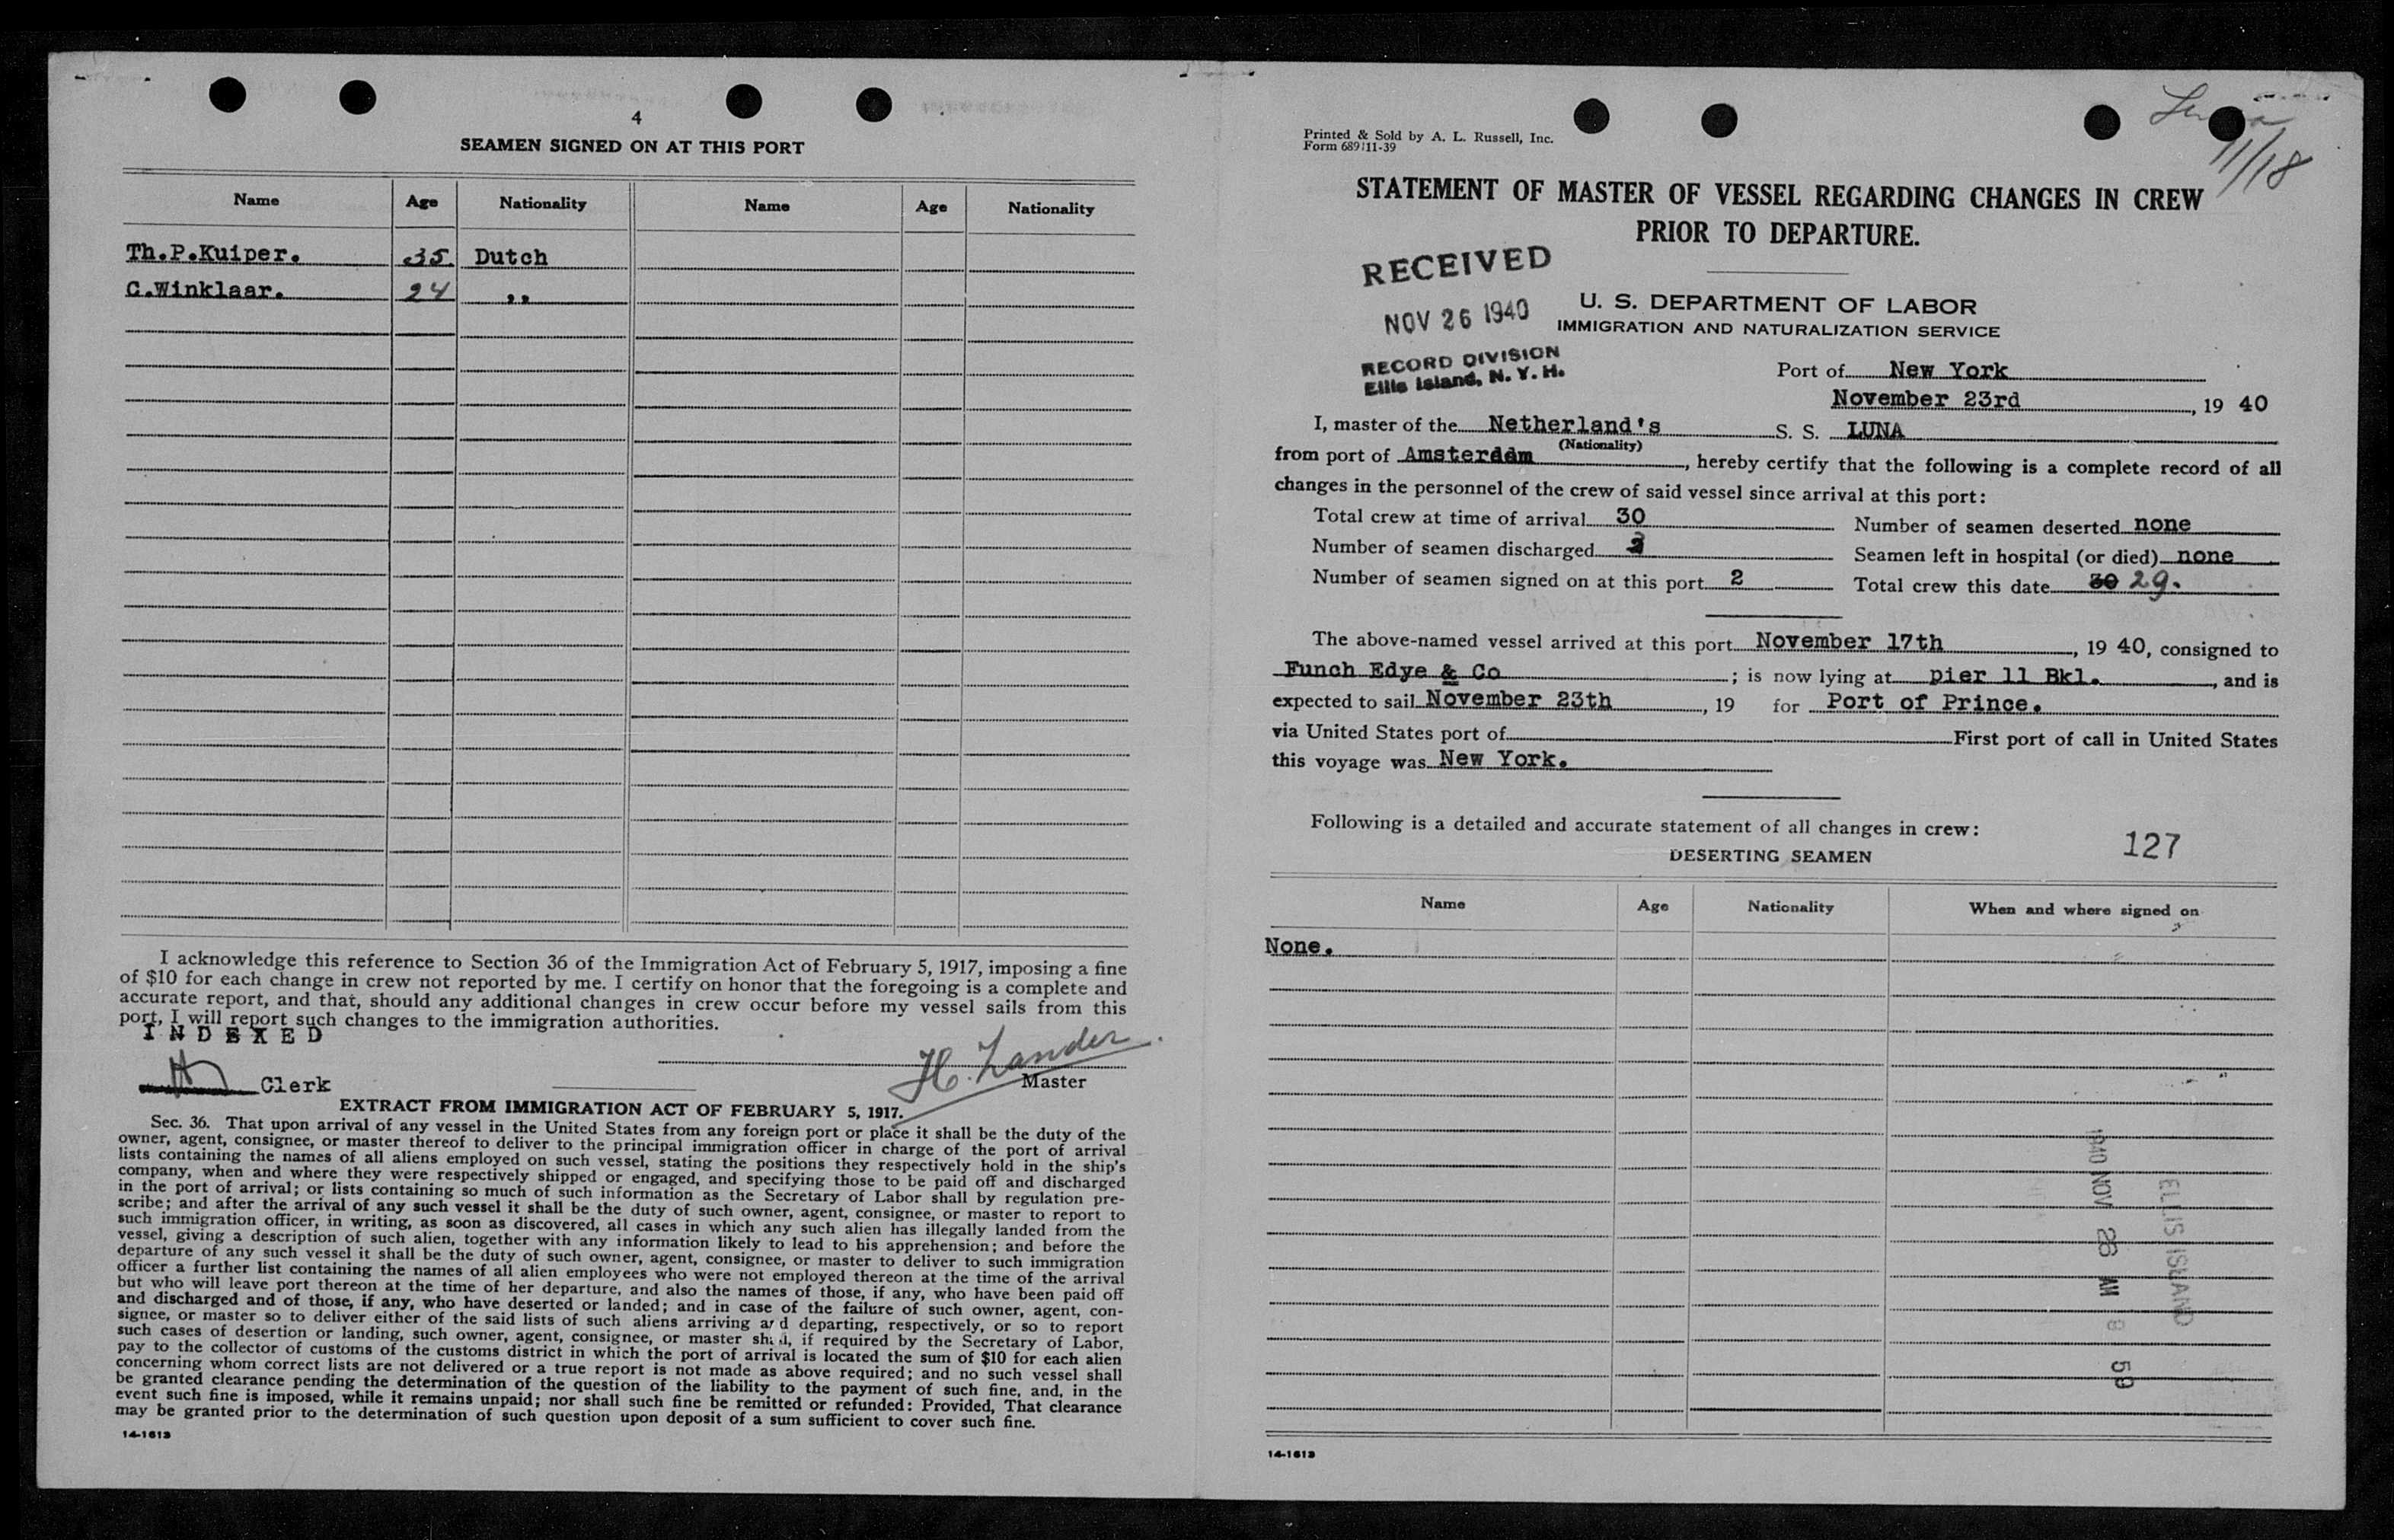 4
SEAMEN SIGNED ON AT THIS PORT
Name Age Nationality Name Age Nationality
Th.P.Kuiper. 35 Dutch
C.Winklaar. 24 ,,
I acknowledge this reference to Section 36 of the Immigration Act of February 5, 1917, imposing a fine
of $10 for each change in crew not reported by me. I certify on honor that the foregoing is a complete and
accurate report, and that, should any additional changes in crew occur before my vessel sails from this
port, I will report such changes to the immigration authorities.
INDEXED
H. Zander
Clerk
Master
EXTRACT FROM IMMIGRATION ACT OF FEBRUARY 5, 1917.
Sec. 36. That upon arrival of any vessel in the United States from any foreign port or place it shall be the duty of the
owner, agent, consignee, or master thereof to deliver to the principal immigration officer in charge of the port of arrival
lists containing the names of all aliens employed on such vessel, stating the positions they respectively hold in the ship's
company, when and where they were respectively shipped or engaged, and specifying those to be paid off and discharged
in the port of arrival; or lists containing so much of such information as the Secretary of Labor shall by regulation pre-
scribe; and after the arrival of any such vessel it shall be the duty of such owner, agent, consignee, or master to report to
such immigration officer, in writing, as soon as discovered, all cases in which any such alien has illegally landed from the
vessel, giving a description of such alien, together with any information likely to lead to his apprehension; and before the
departure of any such vessel it shall be the duty of such owner, agent, consignee, or master to deliver to such immigration
officer a further list containing the names of all alien employees who were not employed thereon at the time of the arrival
but who will leave port thereon at the time of her departure, and also the names of those, if any, who have been paid off
and discharged and of those, if any, who have deserted or landed; and in case of the failure of such owner, agent, con-
signee, or master so to deliver either of the said lists of such aliens arriving and departing, respectively, or so to report
such cases of desertion or landing, such owner, agent, consignee, or master shall, if required by the Secretary of Labor,
pay to the collector of customs of the customs district in which the port of arrival is located the sum of $10 for each alien
concerning whom correct lists are not delivered or a true report is not made as above required; and no such vessel shall
be granted clearance pending the determination of the question of the liability to the payment of such fine, and, in the
event such fine is imposed, while it remains unpaid; nor shall such fine be remitted or refunded: Provided, That clearance
may be granted prior to the determination of such question upon deposit of a sum sufficient to cover such fine.
14-1613
11/18
Printed & Sold by A. L. Russell, Inc.
Form 689 11-39
STATEMENT OF MASTER OF VESSEL REGARDING CHANGES IN CREW
PRIOR TO DEPARTURE.
RECEIVED
NOV 26 1940
RECORD DIVISION
Ellis Island, N. Y. H.
U. S. DEPARTMENT OF LABOR
IMMIGRATION AND NATURALIZATION SERVICE
Port of New York
November 23rd, 19 40
I, master of the Netherland's S. S. LUNA
(Nationality)
from port of Amsterdam, hereby certify that the following is a complete record of all
changes in the personnel of the crew of said vessel since arrival at this port:
Total crew at time of arrival 30 Number of seamen deserted none
Number of seamen discharged 3 Seamen left in hospital (or died) none
Number of seamen signed on at this port 2 Total crew this date 30 29.
The above-named vessel arrived at this port November 17th, 19 40, consigned to
Funch Edye & Co; is now lying at pier 11 Bkl., and is
expected to sail November 23th, 19 for Port of Prince.
via United States port of First port of call in United States
this voyage was New York.
Following is a detailed and accurate statement of all changes in crew:
127
DESERTING SEAMEN
Name Age Nationality When and where signed on
None.
1940 NOV 26 AM 8 59
ELLIS ISLAND
14-1613